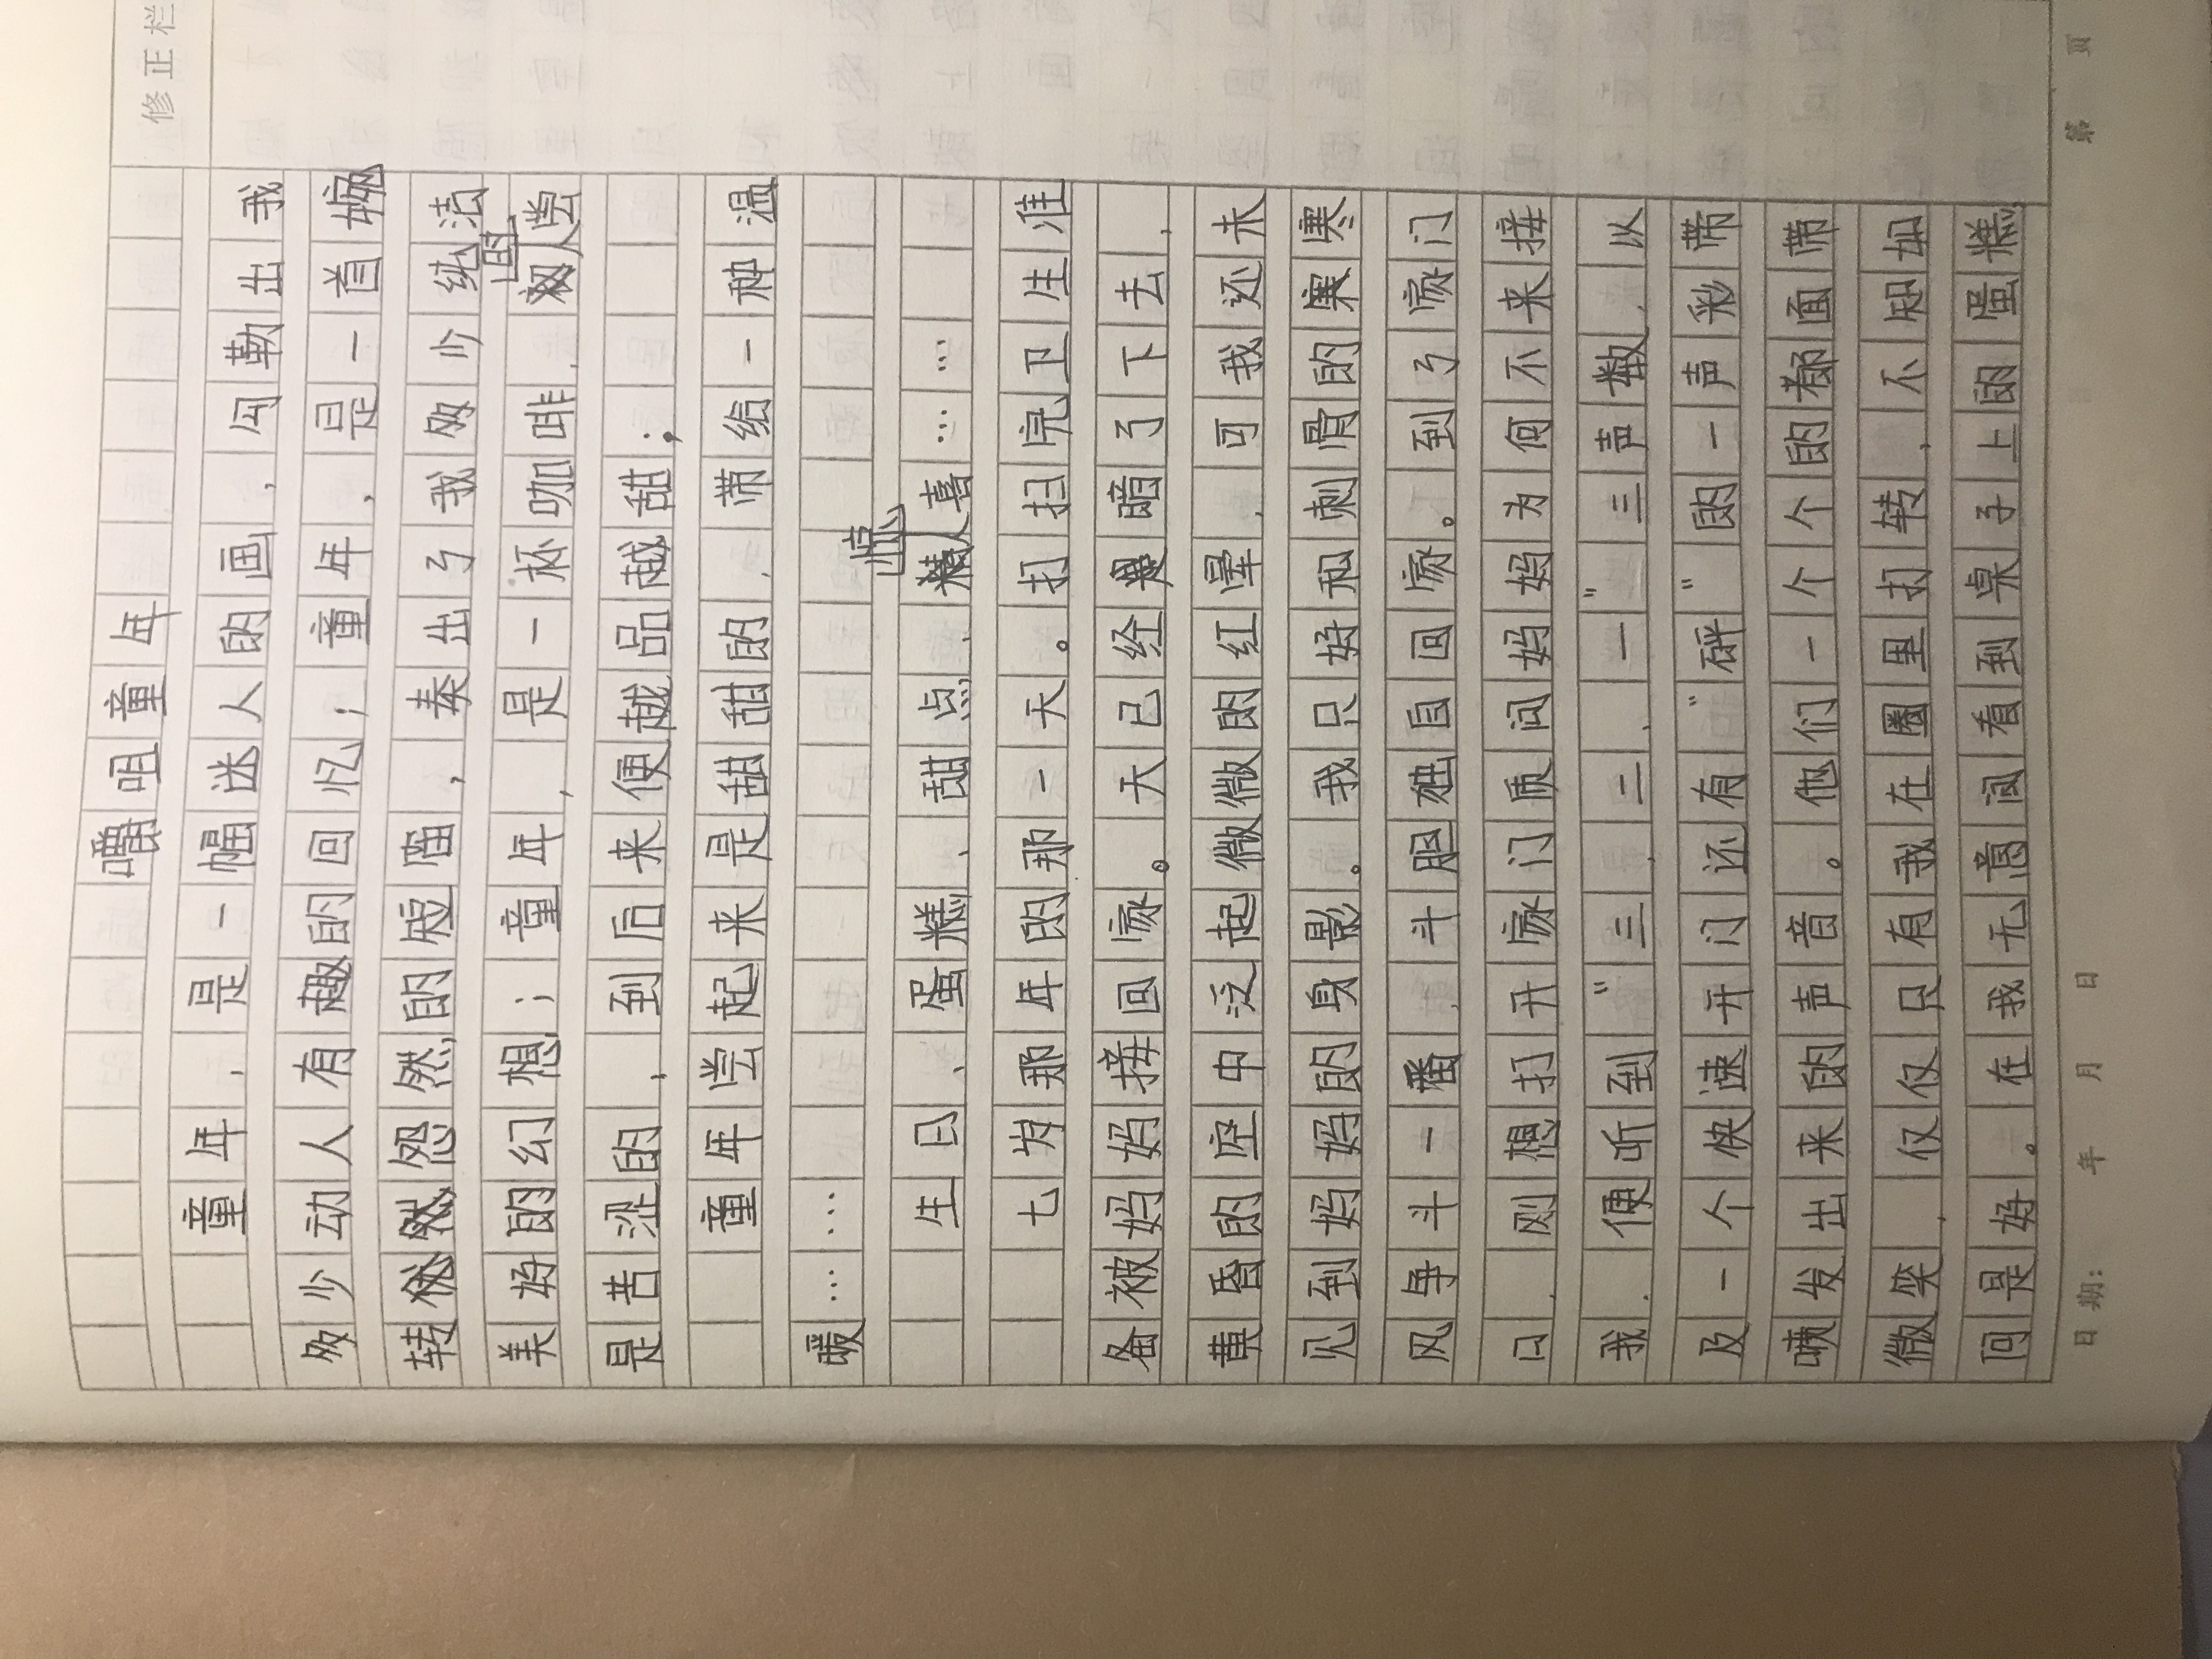 修正栏
嚼咀童年
童年，是一幅迷人的画，勾勒出我
多少动人有趣的回忆；童年，是一首婉
转悠然的短笛，奏出了我多少纯洁
美好的幻想；童年，是一杯咖啡，初尝
是苦涩的，到后来便越品越甜；
童年尝起来是甜甜的，带给一种温
暖……
生日、蛋糕、甜点、惊喜……
七岁那年的那一天。打扫完卫生准
备被妈妈接回家。天已经暗了下去，
黄昏的空中泛起微微的红晕，可我还未
见到妈妈的身影。我只好和刺骨的寒
风争斗一番，斗胆独自回家。到了家门
口，刚想打开家门质问妈妈为何不来接
我，便听到“三、二、一”三声数，以
及一个快速开门还有“砰”的一声彩带
喷发出来的声音。他们一个个的都面带
微笑，仅仅只有我在圈里打转，不知如
何是好。在我无意间看到桌子上的蛋糕，
日期： 年 月 日 第 页